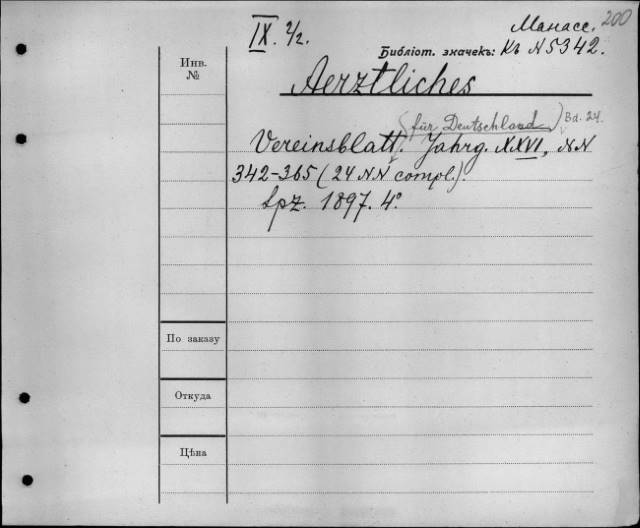 Манасс. 200
IX. 2/2.
Библіот. значекъ: Къ N 5342.
Инв.
№
Aerztliches
(für Deutschland) Bd. 24.
Vereinsblatt. Jahrg. XXVI, NN
342-365 (24 NN compl.).
Lpz. 1897. 4°
По заказу
Откуда
Цѣна